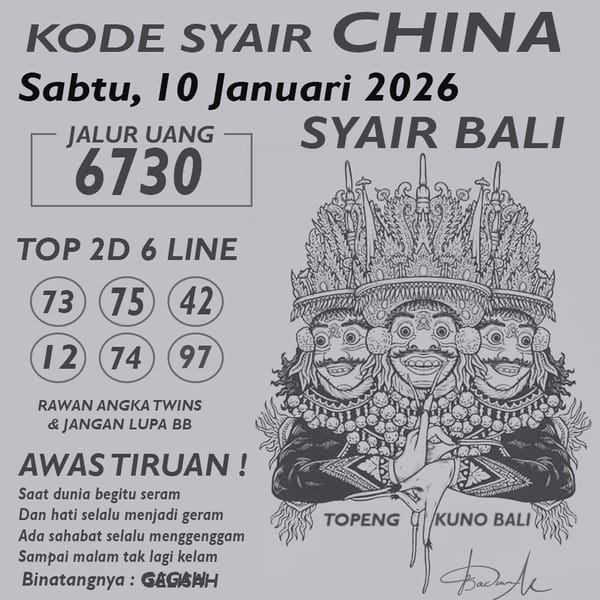 KODE SYAIR CHINA
Sabtu, 10 Januari 2026
JALUR UANG
6730
SYAIR BALI
TOP 2D 6 LINE
73 75 42
12 74 97
RAWAN ANGKA TWINS
& JANGAN LUPA BB
AWAS TIRUAN !
Saat dunia begitu seram
Dan hati selalu menjadi geram
Ada sahabat selalu menggenggam
Sampai malam tak lagi kelam
Binatangnya :
TOPENG KUNO BALI